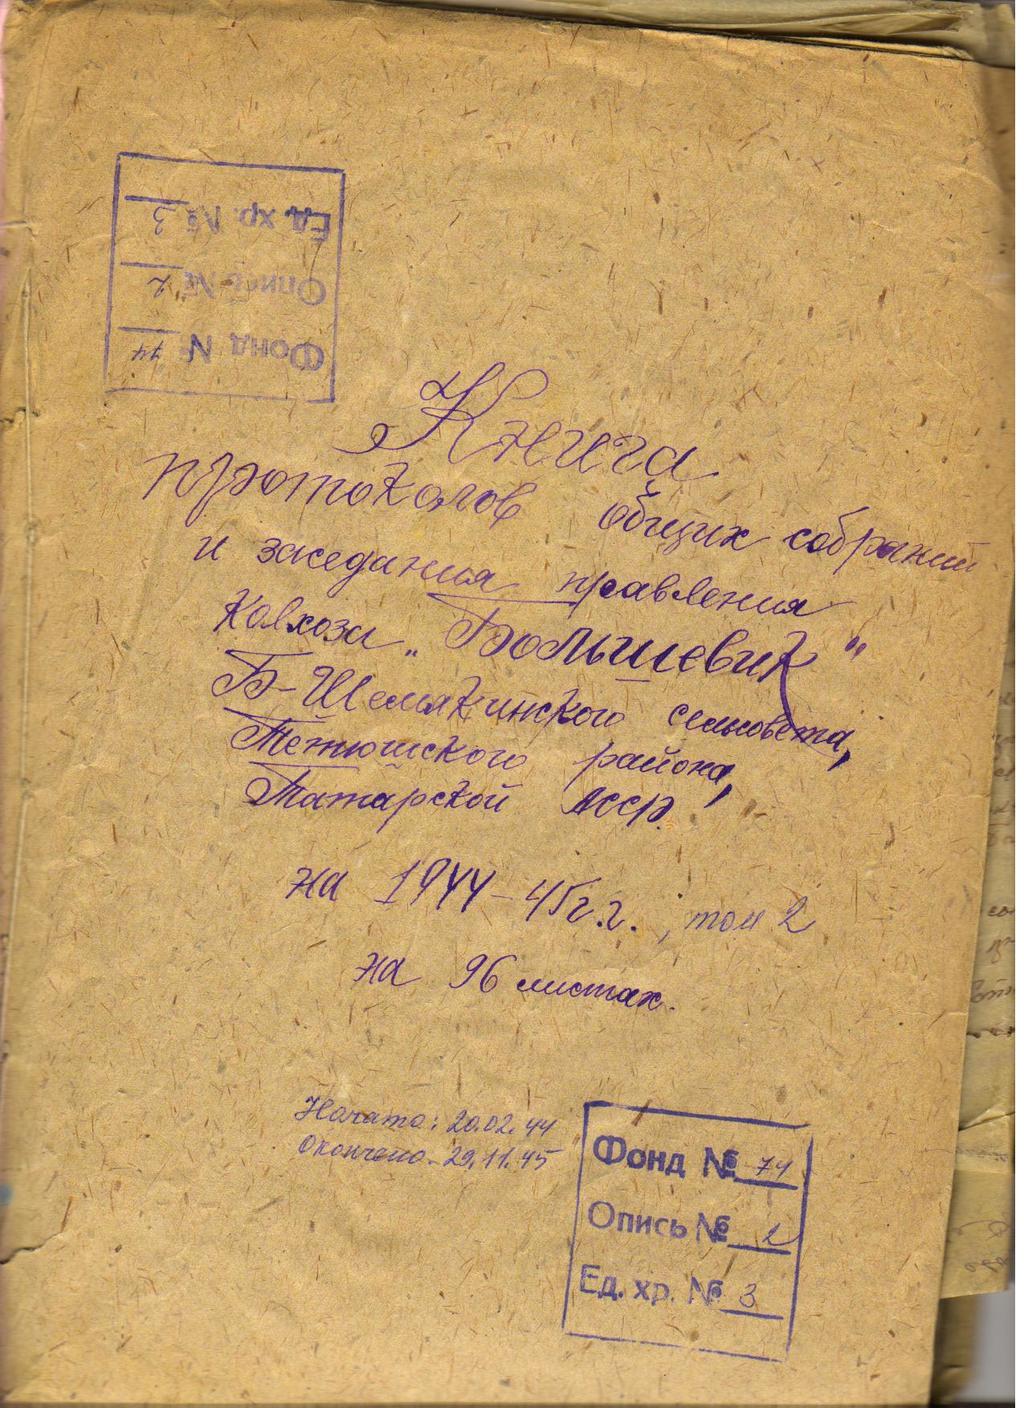 Ед. хр. № 3
Опись № 2
Фонд № 74
Книга
протоколов общих собраний
и заседания правления
колхоза „Большевик"
Б-Шемякинского сельсовета,
Тетюшского района,
Татарской АССР.
на 1944-45г.г., том 2
на 96 листах.
Начато: 20.02.44
Окончено. 29.11.45
Фонд № 74
Опись № 2
Ед. хр. № 3